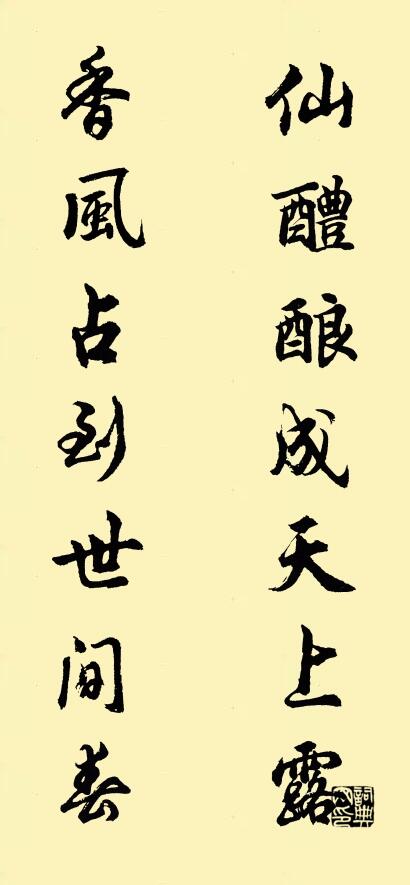 仙醴酿成天上露
香風占到世间春
詞典